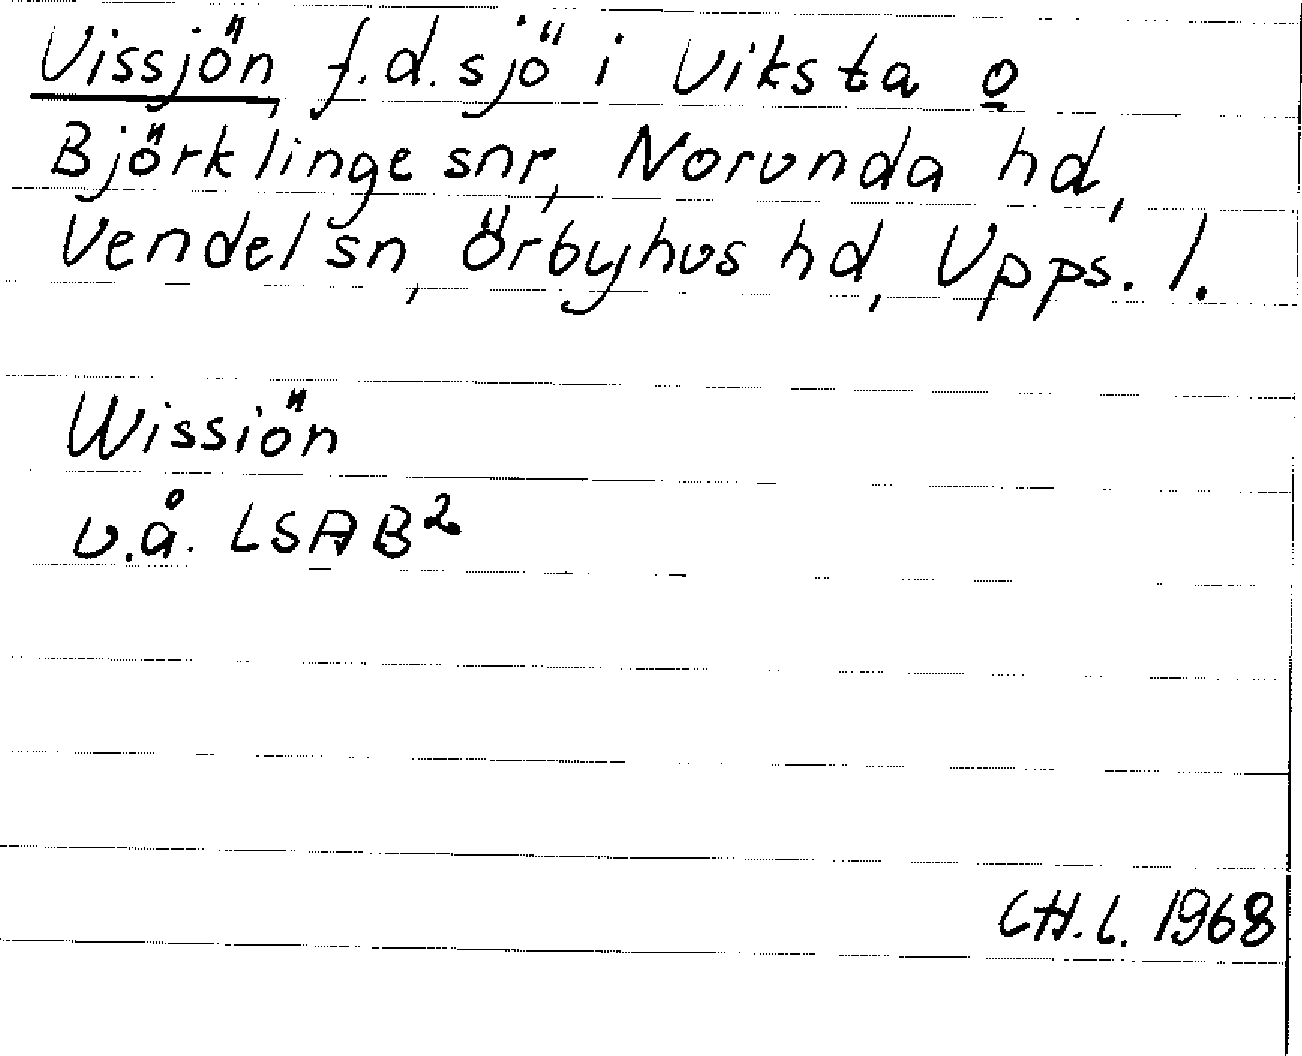 Vissjön, f.d. sjö i Viksta o
Björklinge snr, Norunda hd,
Vendel sn, Örbyhus hd, Upps. l.
Wissiön
u.å. LSA B²
CH.L. 1968